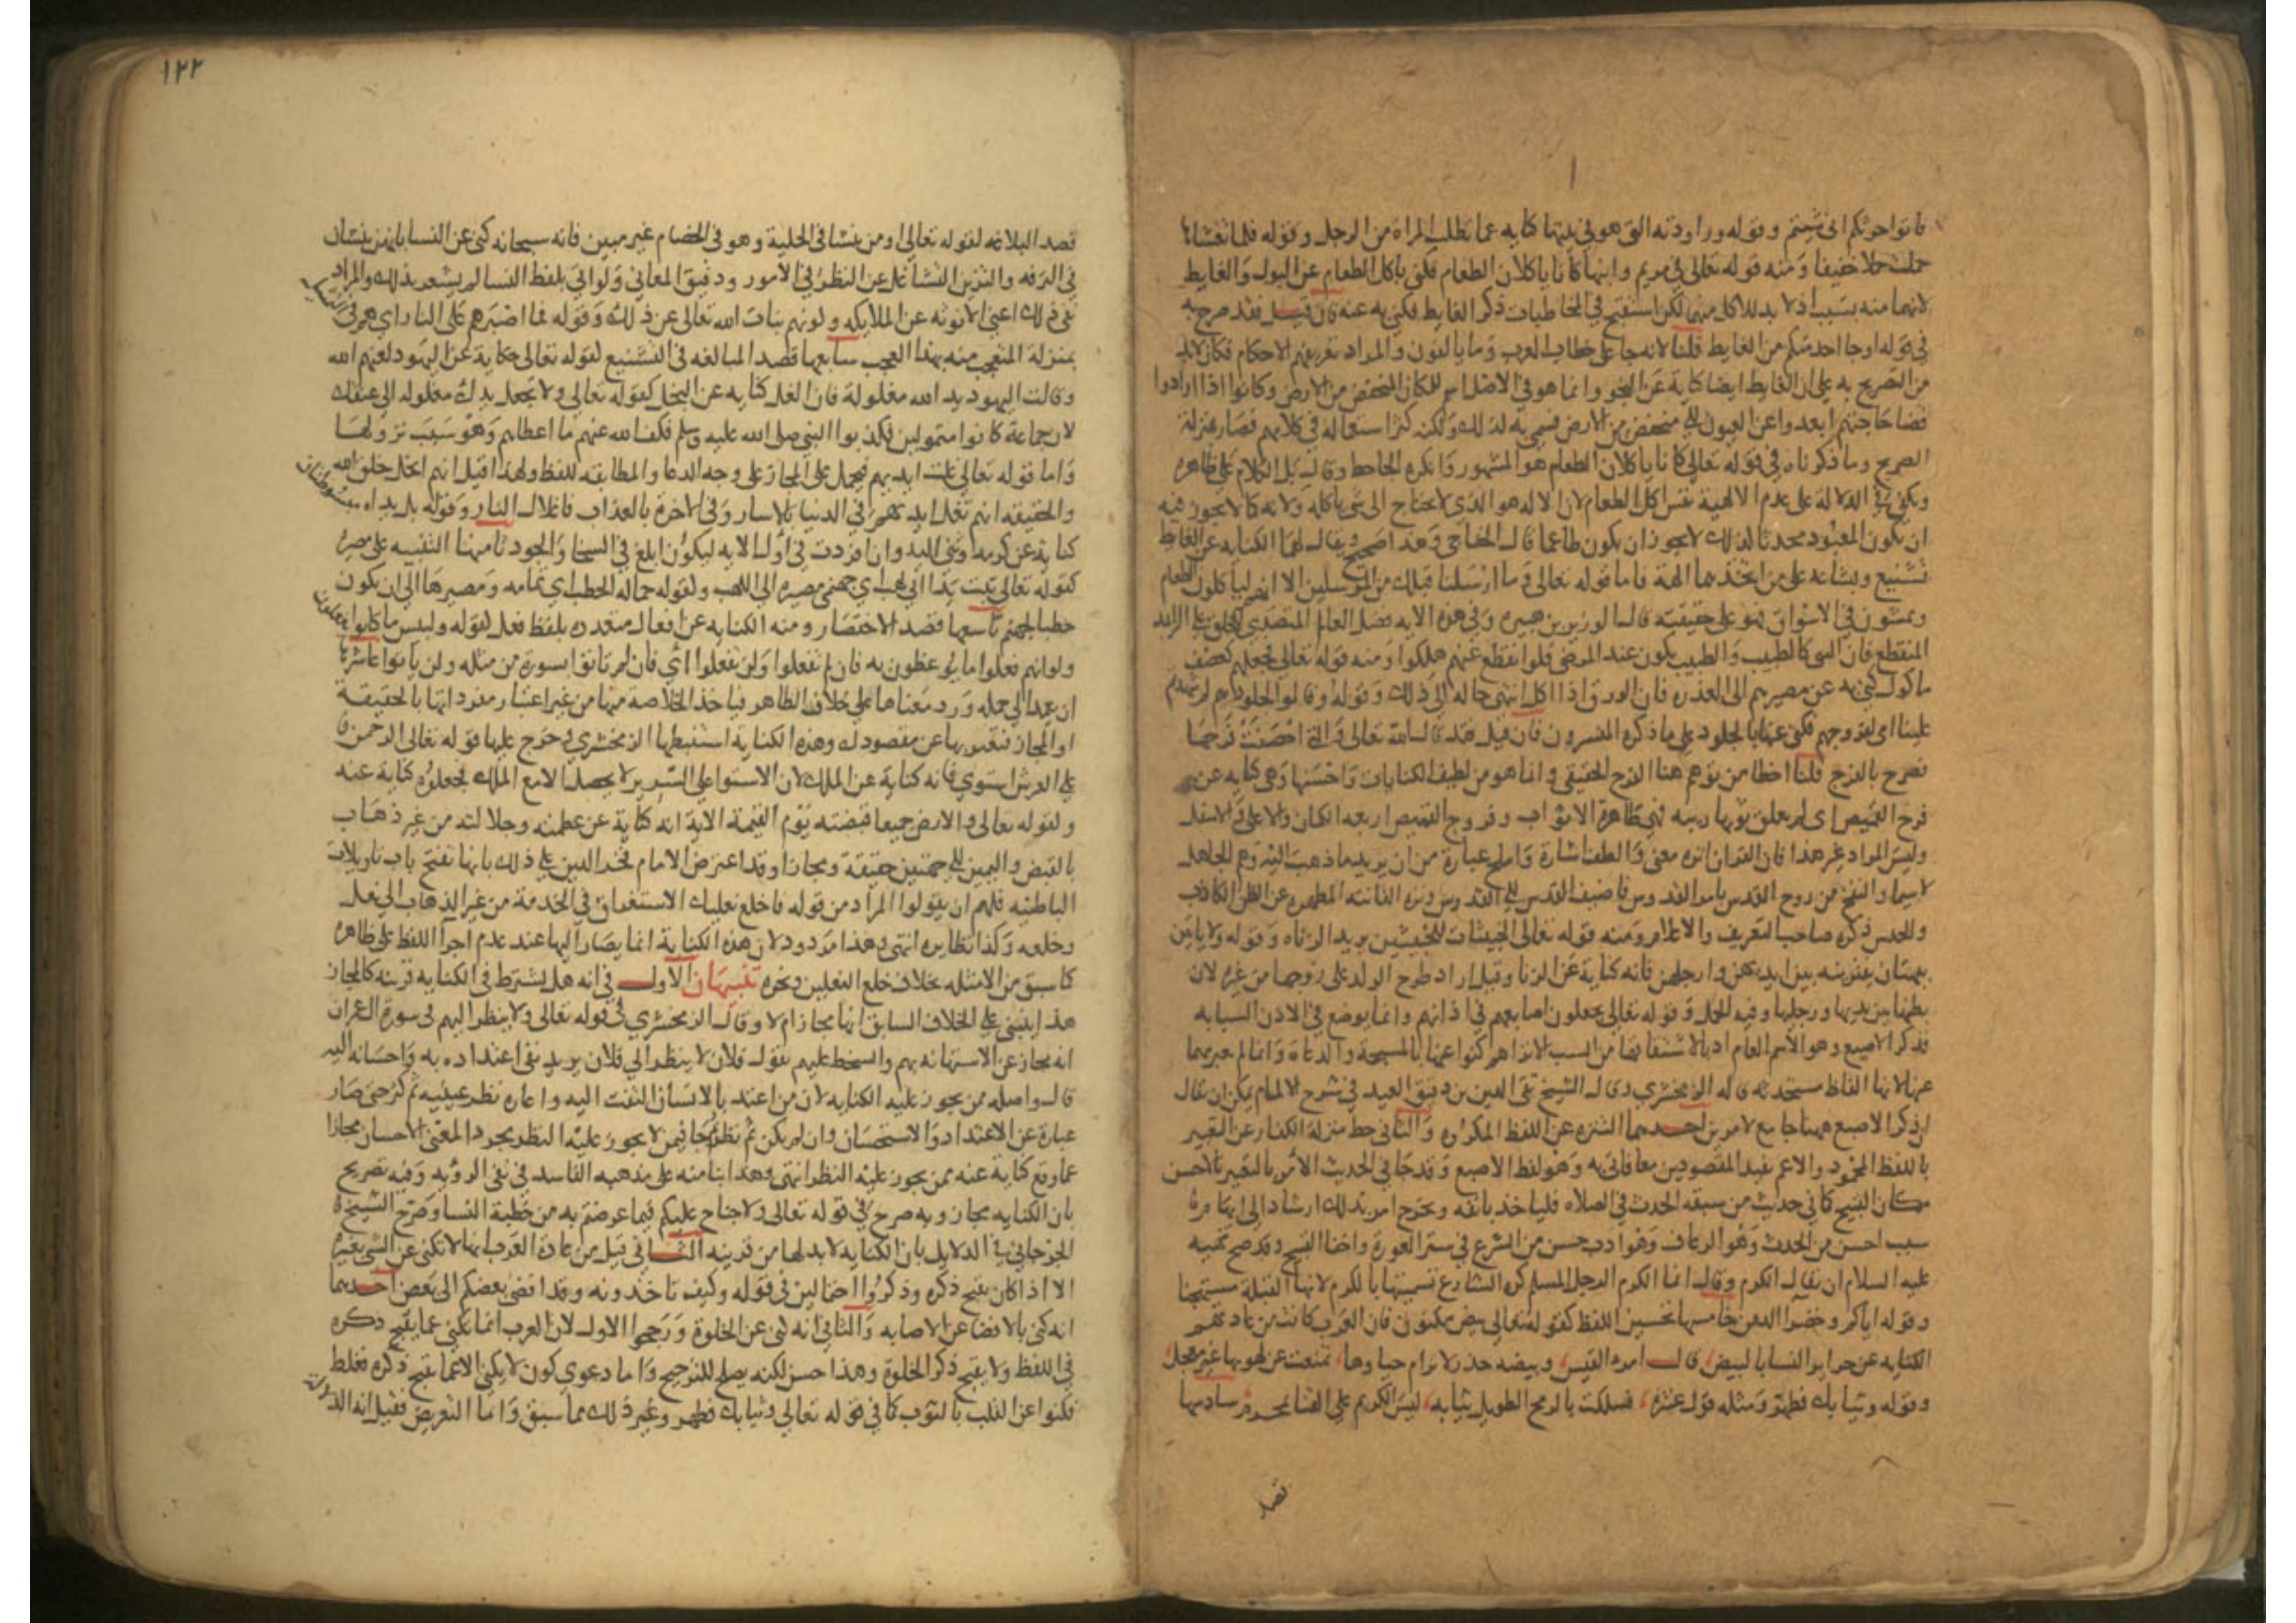 فاتوا حرثكم انى شيتم وقوله وراودته التى هو فى بيتها كناية عما تطلب المراة من الرجل وقوله فلما تغشاها
حملت حملا خفيفا ومنه قوله تعالى فى مريم وابنها كانا ياكلان الطعام فكنى باكل الطعام عن البول والغايط
لانهما منه بسبب اذ لا بد للاكل منهما لكن استقبح فى المخاطبات ذكر الغايط فكنى به عنه فان قيل فقد صرح به
فى قوله او جا احد منكم من الغايط قلنا لانه جا على خطاب العرب وما يالفون والمراد تعريفهم الاحكام فكان لا بد
من التصريح به على ان الغايط ايضا كناية عن النجو وانما هو فى الاصل اسم للمكان المنخفض من الارض وكانوا اذا ارادوا
قضا حاجتهم ابعدوا عن العيون الى منخفض من الارض فسمى به لذلك ولكنه كثر استعماله فى كلامهم فصار بمنزلة
الصريح وما ذكرناه فى قوله تعالى كانا ياكلان الطعام هو المشهور وانكره الجاحظ وقال بل الكلام على ظاهره
ويكفى فى الدلالة على عدم الالهية نفس اكل الطعام لان الاله هو الذى لا يحتاج الى شى ياكله ولانه كما لا يجوز فيه
ان يكون المعبود محدثا كذلك لا يجوز ان يكون طاعما قال الخفاجى وهذا صحيح ويقال لهما الكناية عن الغايط
تشنيع وبشاعة على من اتخذهما الهة فاما قوله تعالى وما ارسلنا قبلك من المرسلين الا انهم لياكلون الطعام
ويمشون فى الاسواق فهو على حقيقته قال الوزير بن هبيرة وفى هذه الاية فضل العالم المتصدى للخلق على الزاهد
المنقطع فان النبى كالطبيب والطبيب يكون عند المرضى فلو انقطع عنهم هلكوا ومنه قوله تعالى فجعلهم كعصف
ماكول كنى به عن مصيرهم الى العذرة فان الورق اذا اكل انتهى حاله الى ذلك وقوله وقالوا لجلودهم لم شهدتم
علينا اى لفروجهم فكنى عنها بالجلود على ما ذكره المفسرون فان قيل فقد قال الله تعالى والتى احصنت فرجها
فصرح بالفرج قلنا اخطا من توهم هنا الفرج الحقيقى وانما هو من لطيف الكنايات واحسنها وهى كناية عن
فرج القميص اى لم يعلق ثوبها ريبة فهى طاهرة الاثواب وفروج القميص اربعة الكمان والاعلى والاسفل
وليس المراد غير هذا فان القران انزه معنى والطف اشارة واملح عبارة من ان يريد ما ذهب اليه وهم الجاهل
لاسيما والنفخ من روح القدس بامر القدوس فاضيف القدس الى القدوس ونزه القانتة المطهرة عن الظن الكاذب
والحدس ذكره صاحب التعريف والاعلام ومنه قوله تعالى الخبيثات للخبيثين يريد الزناه وقوله ولا ياتين
ببهتان يفترينه بين ايديهن وارجلهن فانه كناية عن الزنا وقيل اراد طرح الولد على زوجها من غيره لان
بطنها بين يديها ورجليها وفيه الحمل وقوله تعالى يجعلون اصابعهم فى اذانهم وانما يوضع فى الاذن السبابه
فذكر الاصبع وهو الاسم العام ادبا لاشتقاقها من السب الا تراهم كنوا عنها بالمسبحة والدعاة وانما لم يعبر بهما
عنها لانها الفاظ مستحدثة قاله الزمخشرى وقال الشيخ تقى الدين بن دقيق العيد فى شرح الالمام يمكن ان يقال
ان ذكر الاصبع ههنا جامع لامرين احدهما التنزه عن اللفظ المكروه والثانى حط منزلة الكفار عن التعبير
باللفظ المحمود والاعم يفيد المقصودين معا فاتى به وهو لفظ الاصبع وقد جا فى الحديث الامر بالتعبير بالاحسن
مكان القبيح كما فى حديث من سبقه الحدث فى الصلاه فلياخذ بانفه ويخرج امر بذلك ارشادا الى ايهام
سبب احسن من الحدث وهو الرعاف وهو ادب حسن من الشرع فى ستر العورة واخفا القبيح وقد صح نهيه
عليه السلام ان يقال الكرم وقال انما الكرم الرجل المسلم كره الشارع تسميتها بالكرم لانها
وقوله اياكم وخضرا الدمن خامسها تحسين اللفظ كقوله تعالى بيض مكنون فان العرب كانت من عادتهم
الكناية عن حراير النسا بالبيض قال امرو القيس وبيضه خدر لا يرام خباوها تمتعت من لهو بها غير معجل
وقوله وثيابك فطهر ومثله قول عنترة فسلكت بالرمح الطويل ثيابه ليس الكريم على القنا بمحرم سادسها
قصد
١٢٢
قصد البلاغه كقوله تعالى اومن ينشا فى الحلية وهو فى الخصام غير مبين فانه سبحانه كنى عن النسا بانهن ينشان
فى الترفه والتزين التشاغل عن النظر فى الامور ودقيق المعانى ولو اتى بلفظ النسا لم يشعر بذلك والمراد
نفى ذلك اعنى الانوثه عن الملايكه وكونهم بنات الله تعالى عن ذلك وقوله فما اصبرهم على النار اى هم فى
بمنزلة المتعجب منه بهذا التعجب سابعها قصد المبالغه فى التشنيع كقوله تعالى حكاية عن اليهود لعنهم الله
وقالت اليهود يد الله مغلولة فان الغل كناية عن البخل كقوله تعالى ولا تجعل يدك مغلوله الى عنقك
لان جماعة كانوا متمولين فكذبوا النبى صلى الله عليه وسلم فكف الله عنهم ما اعطاهم وهو سبب نزولها
واما قوله تعالى غلت ايديهم فيحمل على المجاز على وجه الدعا والمطابقه للفظ ولهذا قيل انهم ابخل خلق الله
والحقيقه انهم تغل ايديهم فى الدنيا بالاسار وفى الاخرة بالعذاب واغلال النار وقوله بل يداه مبسوطتان
كناية عن كرمه وثنى اليد وان افردت فى اول الاية ليكون ابلغ فى السخا والجود ثامنها التنبيه على مصيره
كقوله تعالى تبت يدا ابى لهب اى جهنمى مصيره الى اللهب وكقوله حمالة الحطب اى نمامه ومصيرها الى ان تكون
حطبا لجهنم تاسعها قصد الاختصار ومنه الكناية عن افعال متعدده بلفظ فعل كقوله ولبيس ما كانوا يفعلون
ولو انهم فعلوا ما يوعظون به فان لم تفعلوا ولن تفعلوا اى فان لم تاتوا بسورة من مثله ولن تاتوا عاشرها
ان يعمد الى جمله ورد معناها على خلاف الظاهر فياخذ الخلاصة منها من غير اعتبار مفرداتها بالحقيقة
او المجاز فتعبر بها عن مقصودك وهذه الكناية استنبطها الزمخشرى وخرج عليها قوله تعالى الرحمن
على العرش استوى فانه كناية عن الملك لان الاستوا على السرير لا يحصل الا مع الملك فجعلوه كناية عنه
وكقوله تعالى والارض جميعا قبضته يوم القيمة الاية انه كناية عن عظمته وجلالته من غير ذهاب
بالقبض واليمين الى جهتين حقيقة ومجازا وقد اعترض الامام فخر الدين على ذلك بانها تفتح باب تاويلات
الباطنيه فلهم ان يقولوا المراد من قوله فاخلع نعليك الاستغراق فى الخدمة من غير الذهاب الى نعل
وخلعه وكذا نظايره انتهى وهذا مردود لان هذه الكناية انما يصار اليها عند عدم اجرا اللفظ على ظاهره
كما سبق من الامثلة بخلاف خلع النعلين ونحوه تنبيهان الاول فى انه هل يشترط فى الكنايه قرينه كالمجاز
هذا ينبنى على الخلاف السابق انها مجاز ام لا وقال الزمخشرى فى قوله تعالى ولا ينظر اليهم فى سورة ال عمران
انه مجاز عن الاستهانه بهم والسخط عليهم تقول فلان لا ينظر الى فلان يريد نفى اعتداده به واحسانه اليه
قال واصله فمن يجوز عليه الكنايه لان من اعتد بالانسان التفت اليه واعاره نظر عينيه ثم كثر حتى صار
عبارة عن الاعتداد والاستحسان وان لم يكن ثم نظر ثم جا فيمن لا يجوز عليه النظر مجردا لمعنى الاحسان مجازا
عما وقع كناية عنه فمن يجوز عليه النظر انتهى وهذا بنا منه على مذهبه الفاسد فى نفى الروية وفيه تصريح
بان الكنايه مجاز وبه صرح فى قوله تعالى ولا جناح عليكم فيما عرضتم به من خطبة النسا وصرح الشيخ
الجرجانى فى الدلايل بان الكناية لا بد لها من قرينه الثانى قيل من عادة العرب انها لا تكنى عن الشى بغيره
الا اذا كان يقبح ذكره وذكروا احتمالين فى قوله وكيف تاخذونه وقد افضى بعضكم الى بعض احدهما
انه كنى بالافضا عن الاصابه والثانى انه كنى عن الخلوة ورجحوا الاول لان العرب انما تكنى عما يقبح ذكره
فى اللفظ ولا يقبح ذكر الخلوة وهذا حسن لكنه يصلح للترجيح واما دعوى كون لا يكنى الا عما يقبح ذكره فغلط
فكنوا عن القلب بالثوب كما فى قوله تعالى وثيابك فطهر وغير ذلك مما سبق واما التعريض فقيل انه الدلالة